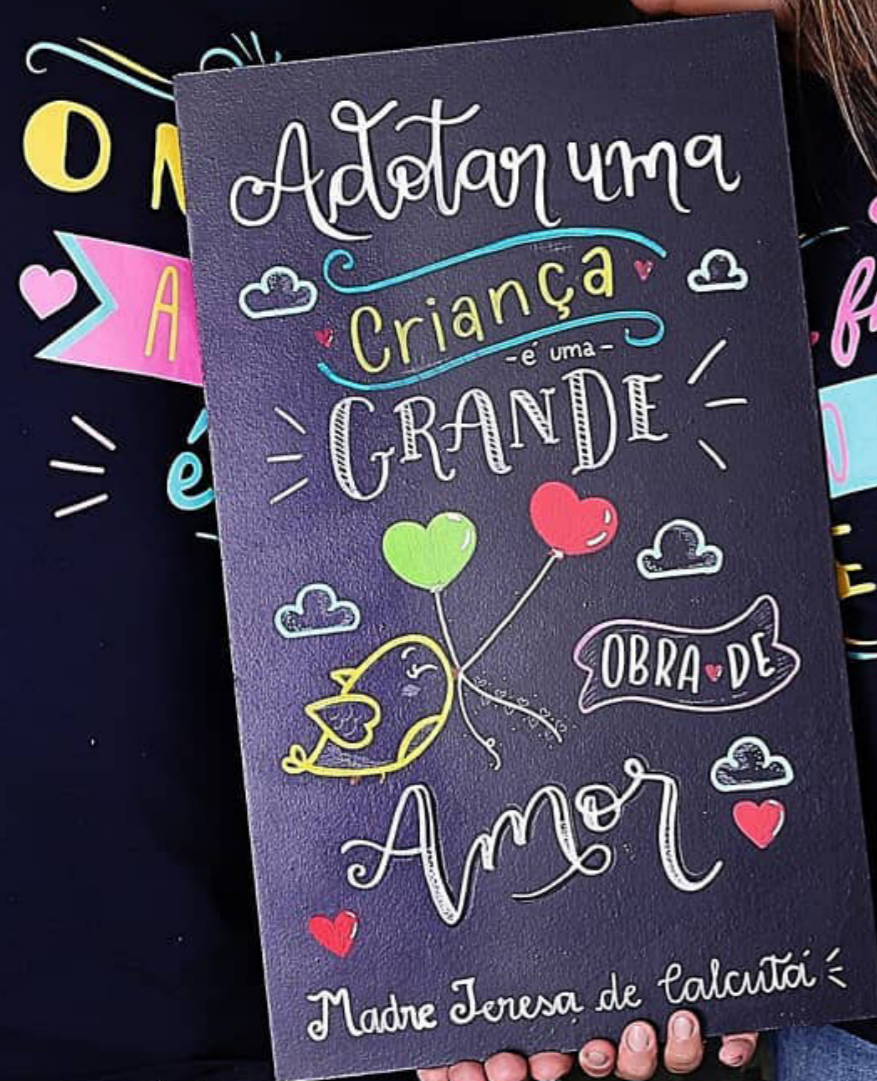 Adotar uma
Criança
-é uma-
GRANDE
OBRA DE
Amor
Madre Teresa de Calcutá
O
A
é